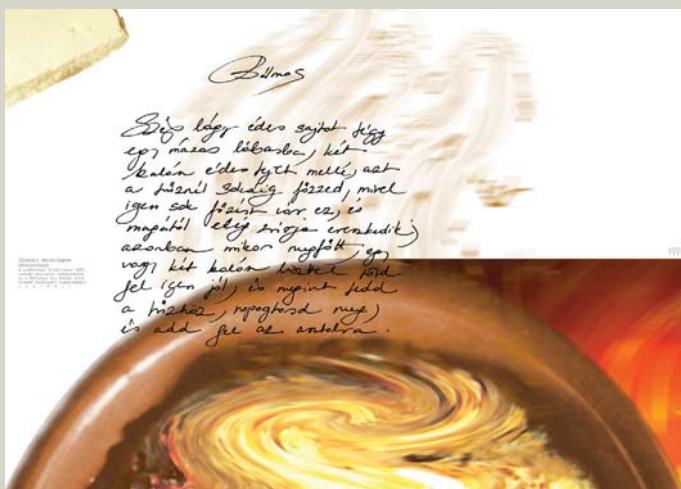 Bálmos
Szép lágy édes sajtot tégy
egy mázas lábasba, két
kalán édes tejet mellé, azt
a tűznél sokáig főzzed, mivel
igen sok főzést vár ez, és
magától elég zsírja ereszkedik,
azonban mikor megfőtt, egy
vagy két kalán liszttel törd
fel igen jól, és megint tedd
a tűzhöz, ropogtasd meg,
és add fel az asztalra.